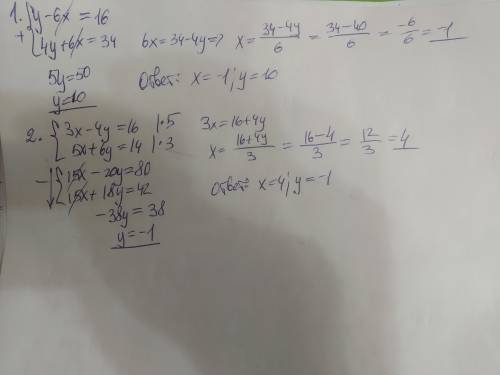 1. {y-6x=16
+ {4y+6x=34 6x=34-4y=> x=34-4y/6 = 34-40/6 = -6/6 = -1
5y=50
y=10 Ответ: x=-1; y=10
2. {3x-4y=16 |·5 3x=16+4y
{5x+6y=14 |·3 x=16+4y/3 = 16-4/3 = 12/3 = 4
- {15x-20y=80
{15x+18y=42 Ответ: x=4; y=-1
-38y=38
y=-1